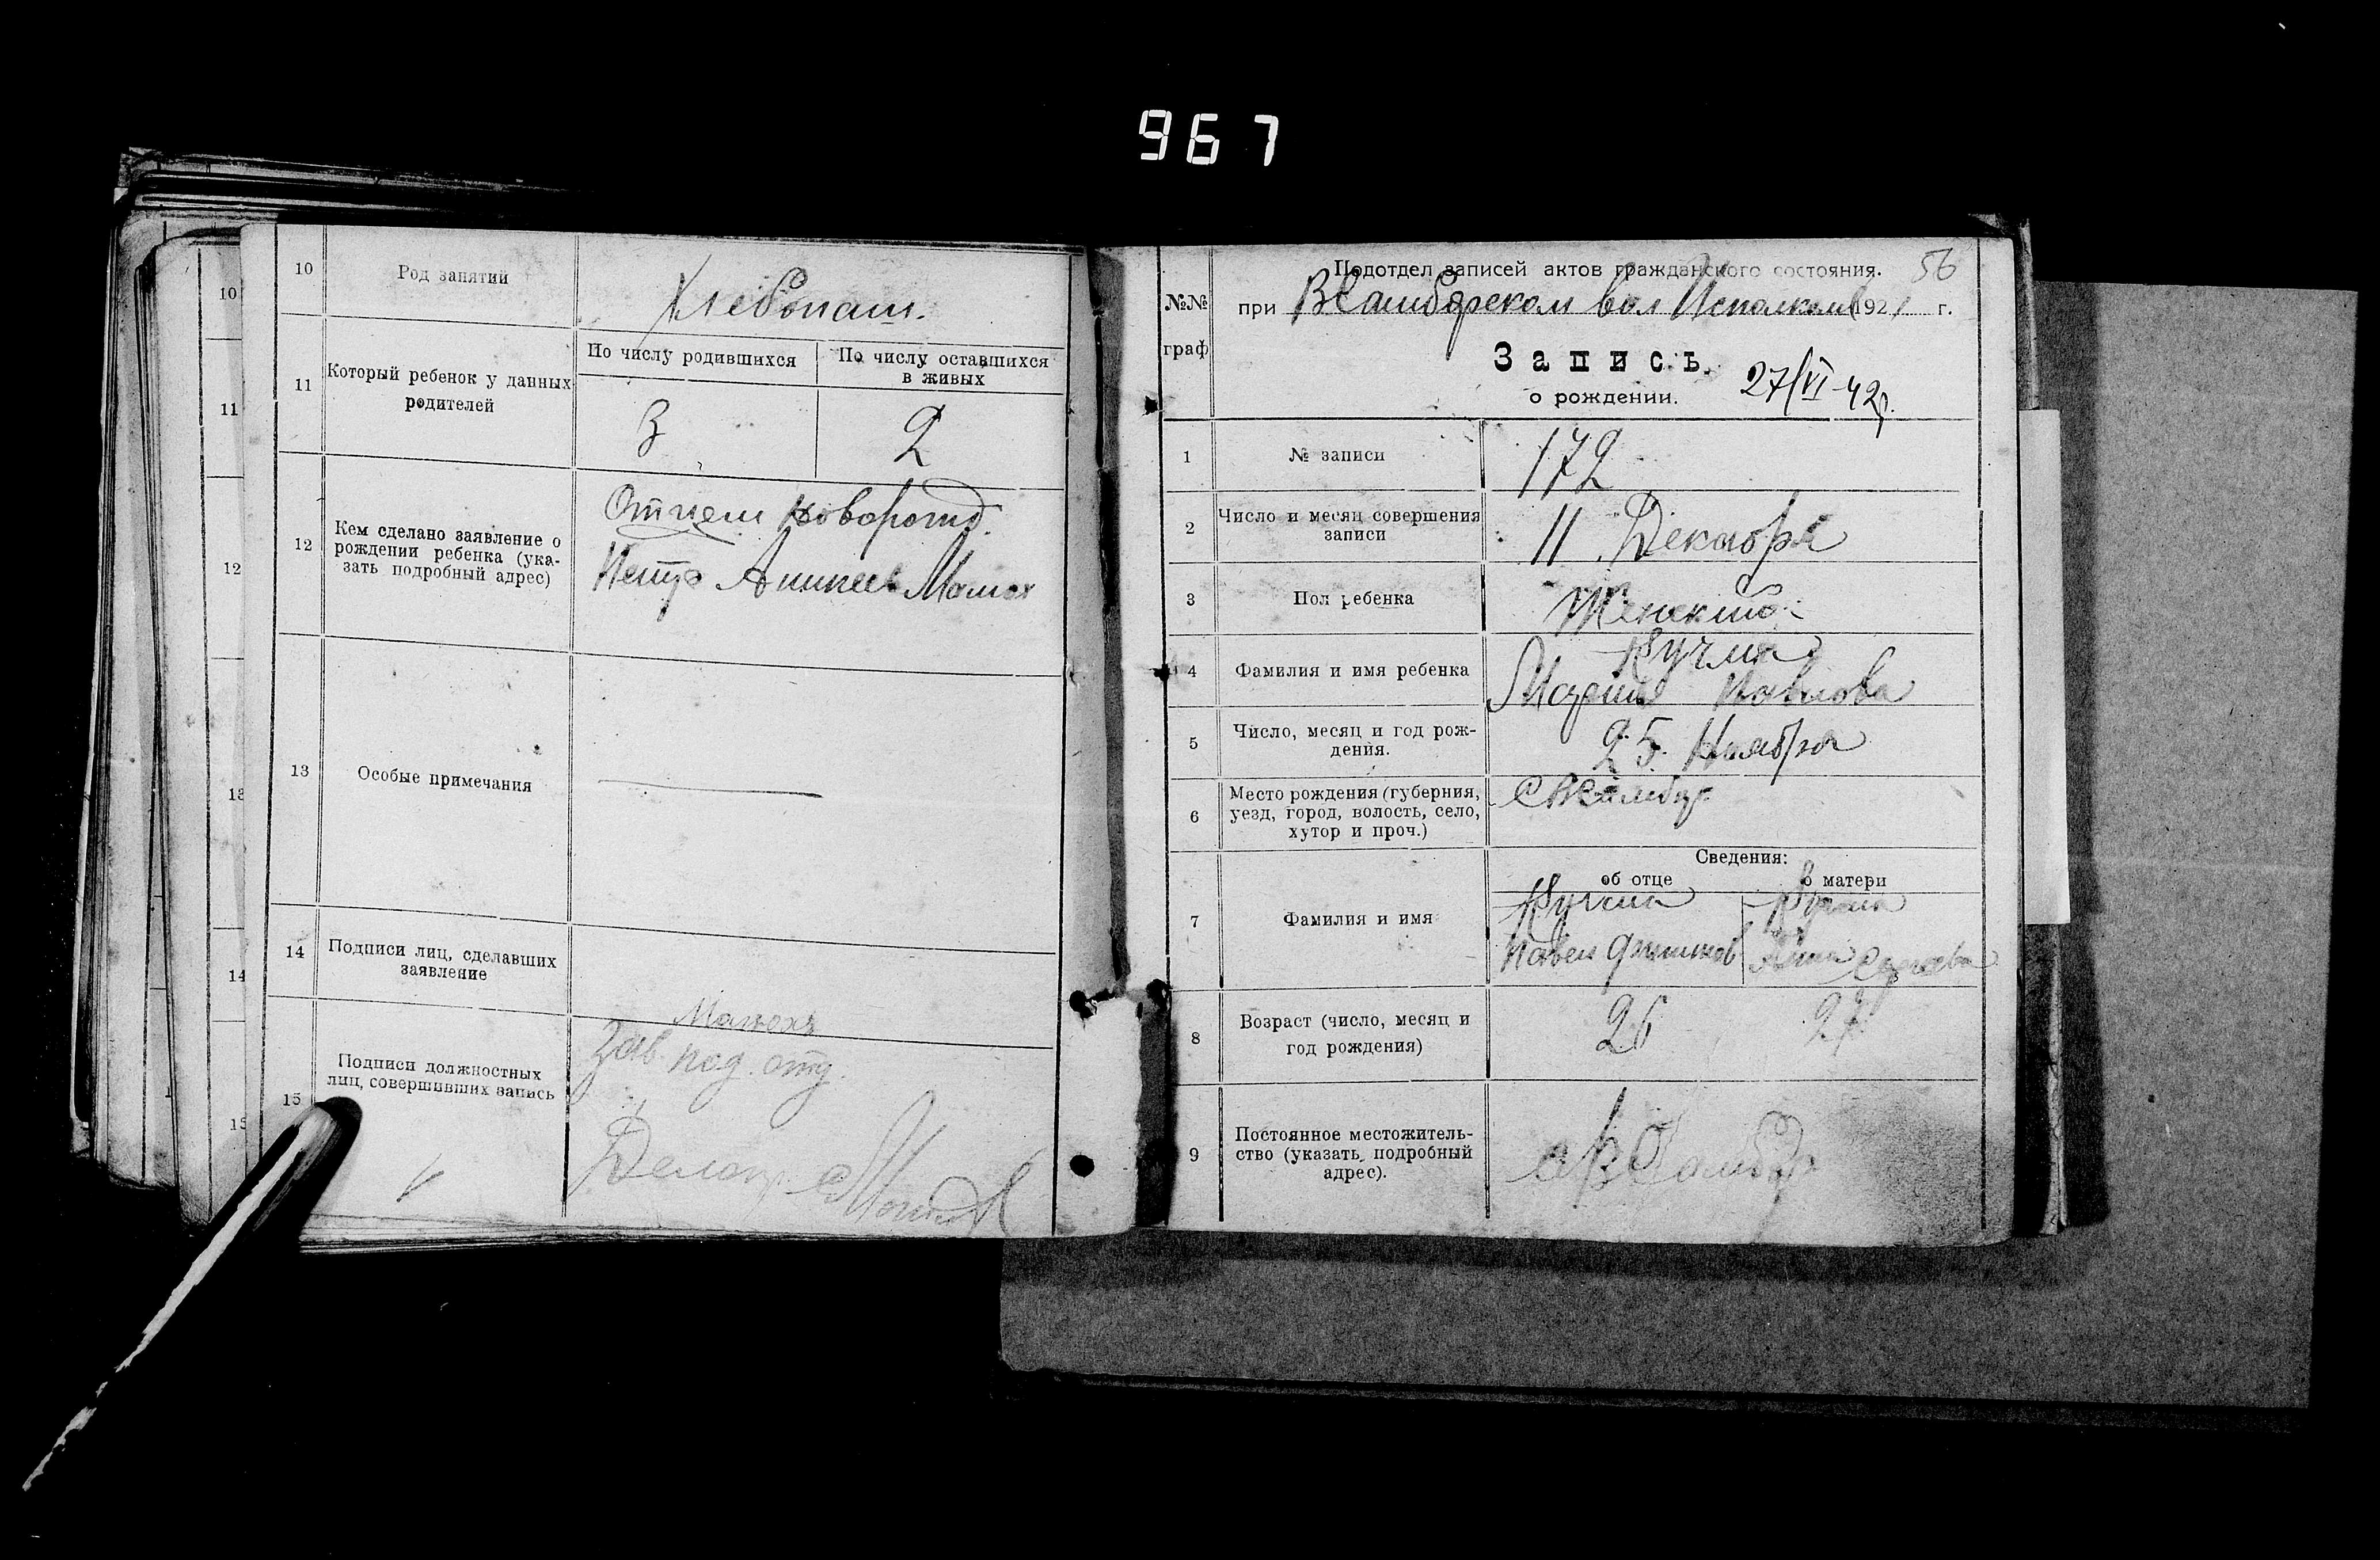 967
10
Род занятий
Хлебопаш.
11
Который ребенок у данных
родителей
По числу родившихся
По числу оставшихся
в живых
3
2
12
Кем сделано заявление о
рождении ребенка (ука-
зать подробный адрес)
Отцем новорожд.
Петр
13
Особые примечания
14
Подписи лиц, сделавших
заявление
15
Подписи должностных
лиц, совершивших запись
Зав. под. отд.
Делопр.
10
11
12
13
14
15
56
Подотдел записей актов гражданского состояния.
№№
граф
при вол Исполкоме 1921 г.
Запись
о рождении.
27/VI-42г.
1
№ записи
172
2
Число и месяц совершения
записи
11 Декабря
3
Пол ребенка
Женский
4
Фамилия и имя ребенка
Кучма
Мария Павлова
5
Число, месяц и год рож-
дения.
25 Ноября
6
Место рождения (губерния,
уезд, город, волость, село,
хутор и проч.)
7
Фамилия и имя
Сведения:
об отце
о матери
Кучма
Кучма
Павел
Анна
8
Возраст (число, месяц и
год рождения)
26
27
9
Постоянное местожитель-
ство (указать подробный
адрес).